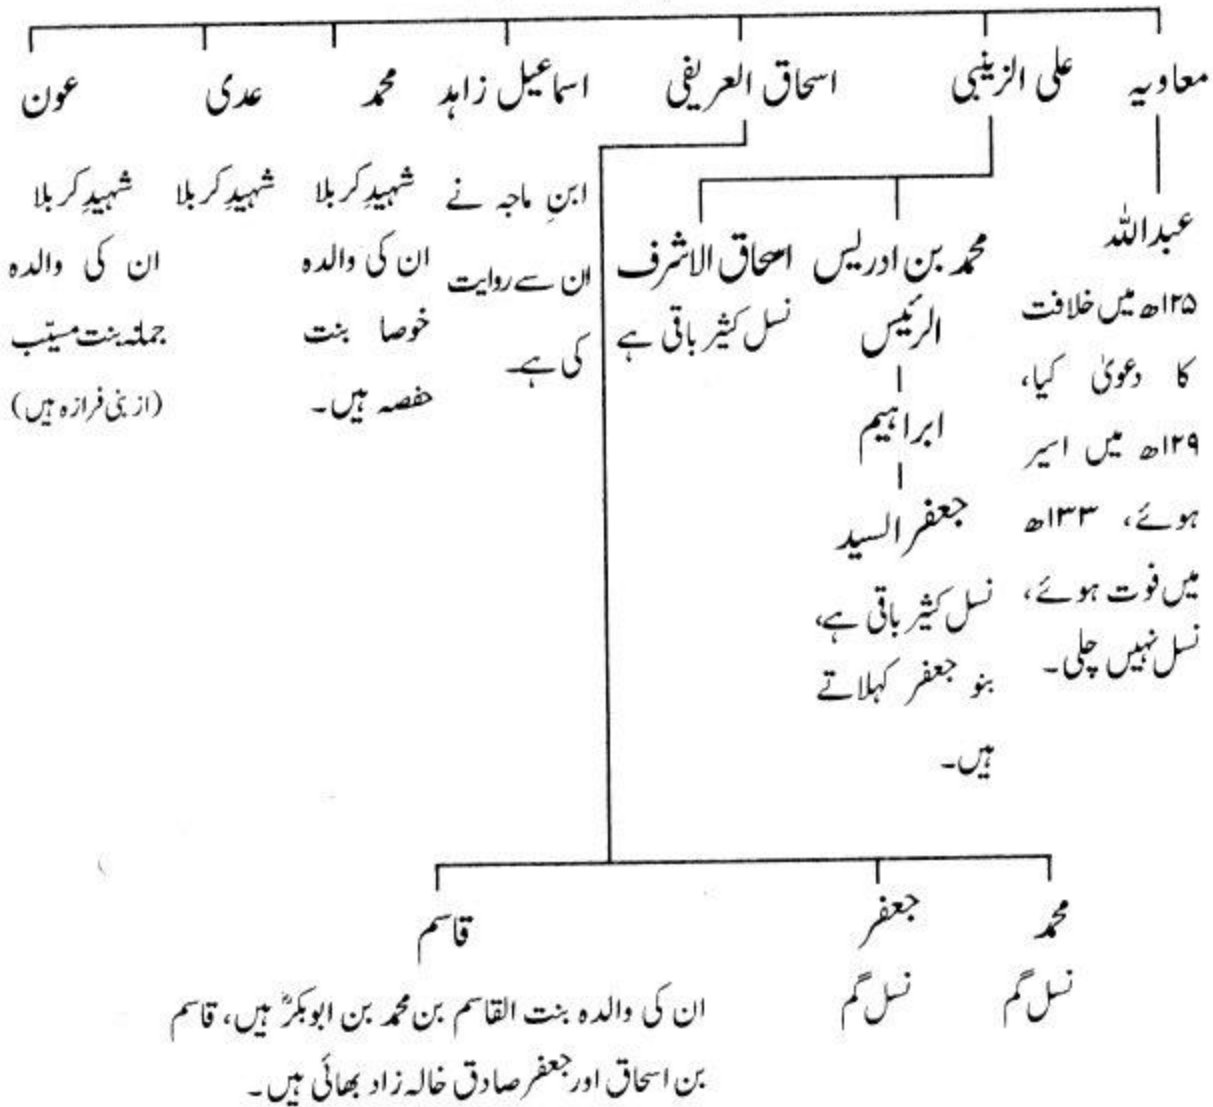 معاویہ
علی الزینبی
اسحاق العریفی
اسماعیل زاہد
محمد
عدی
عون
عبداللہ
۱۲۵ھ میں خلافت
کا دعویٰ کیا،
۱۲۹ھ میں اسیر
ہوئے، ۱۳۳ھ
میں فوت ہوئے،
نسل نہیں چلی۔
محمد بن ادریس
الرئیس
ابراہیم
جعفر السید
نسل کثیر باقی ہے،
بنو جعفر کہلاتے
ہیں۔
اسحاق الاشرف
نسل کثیر باقی ہے
ابنِ ماجہ نے
ان سے روایت
کی ہے۔
شہیدِ کربلا
ان کی والدہ
خوصا بنت
حفصہ ہیں۔
شہیدِ کربلا
شہیدِ کربلا
ان کی والدہ
جمانہ بنت مسیّب
(از بنی فرازہ ہیں)
محمد
نسل گم
جعفر
نسل گم
قاسم
ان کی والدہ بنت القاسم بن محمد بن ابوبکرؓ ہیں، قاسم
بن اسحاق اور جعفر صادق خالہ زاد بھائی ہیں۔